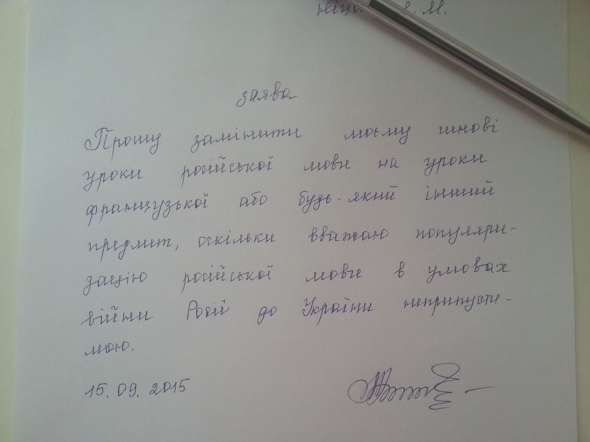 М.
заява
Прошу замінити моєму синові
уроки російської мови на уроки
французької або будь-який інший
предмет, оскільки вважаю популяри-
зацію російської мови в умовах
війни Росії до України неприпусти-
мою.
15.09.2015